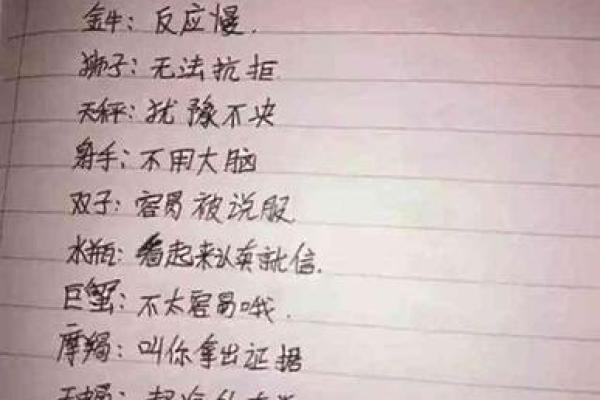 金牛：反应慢.
狮子：无法抗拒
天秤：犹豫不决
射手：不用大脑
双子：容易被说服.
水瓶：看起来认真就信.
巨蟹：不太容易哦.
摩羯：叫你拿出证据